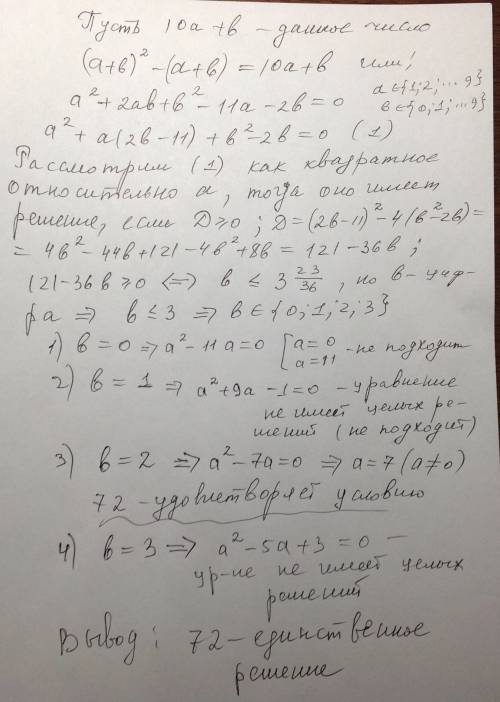 Пусть 10а+в – данное число
(а+в)² – (а+в) = 10а+в или:
а ∈ {1; 2; ... 9}
в ∈ {0; 1; ... 9}
а² + 2ав + в² – 11а – 2в = 0
а² + а(2в – 11) + в² – 2в = 0 (1)
Рассмотрим (1) как квадратное
относительно а, тогда оно имеет
решение, если D ≥ 0; D = (2в–11)² – 4(в²–2в) =
= 4в² – 44в + 121 – 4в² + 8в = 121 – 36в;
121 – 36в ≥ 0 <=> в ≤ 3 23/36, но в – циф-
ра => в ≤ 3 => в ∈ {0; 1; 2; 3}
1) в = 0 => а² – 11а = 0 [а = 0 а = 11 – не подходит
2) в = 1 => а² + 9а – 1 = 0 – уравнение
не имеет целых ре-
шений (не подходит)
3) в = 2 => а² – 7а = 0 => а = 7 (а ≠ 0)
72 – удовлетворяет условию
4) в = 3 => а² – 5а + 3 = 0 –
ур-ие не имеет целых
решений
Вывод: 72 – единственное
решение